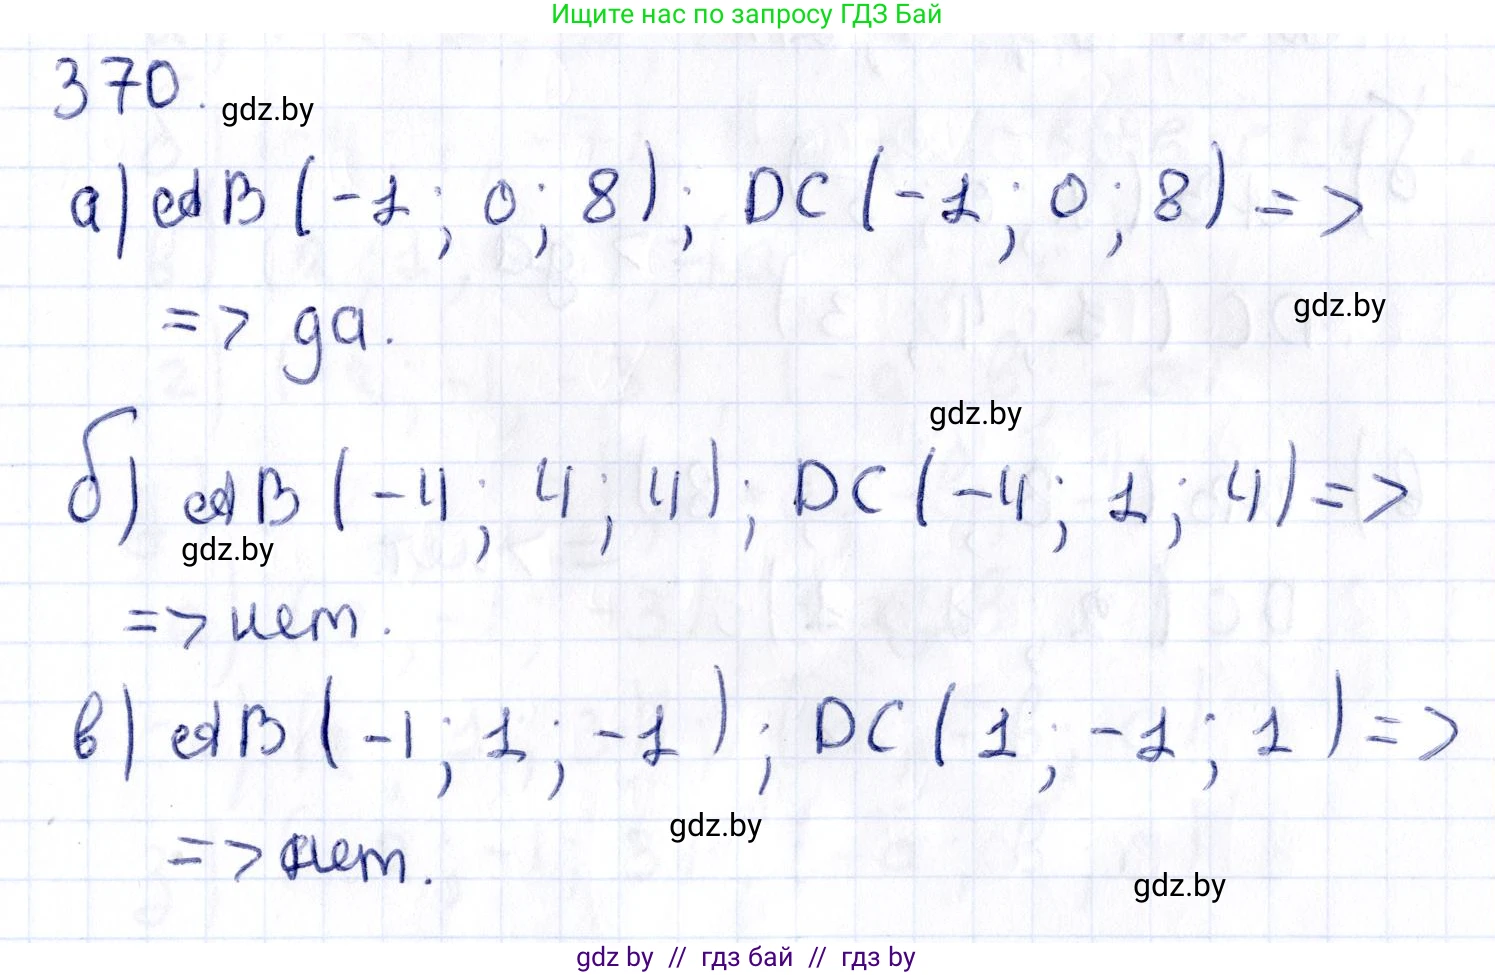 Ищите нас по запросу ГДЗ Бай
370.
gdz.by
а) AB (-1; 0; 8); DC (-1; 0; 8) =>
=> да.
gdz.by
gdz.by
б) AB (-4; 4; 4); DC (-4; 1; 4) =>
gdz.by
=> нет.
в) AB (-1; 1; -1); DC (1; -1; 1) =>
gdz.by
=> нет.
gdz.by
gdz by // гдз бай // гдз by